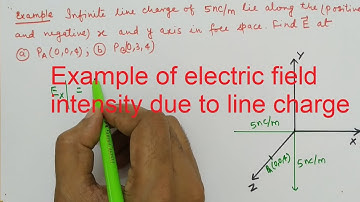 Example Infinite line charge of 5nc/m lie along the (positive
and negative) x and y axis in free space. Find E⃗ at
(a) PA(0,0,4) ; (b) PB(0,3,4)
Example of electric field
intensity due to line charge
Ex =
Y
5nc/m
X
PA(0,0,4)
5nc/m
Z